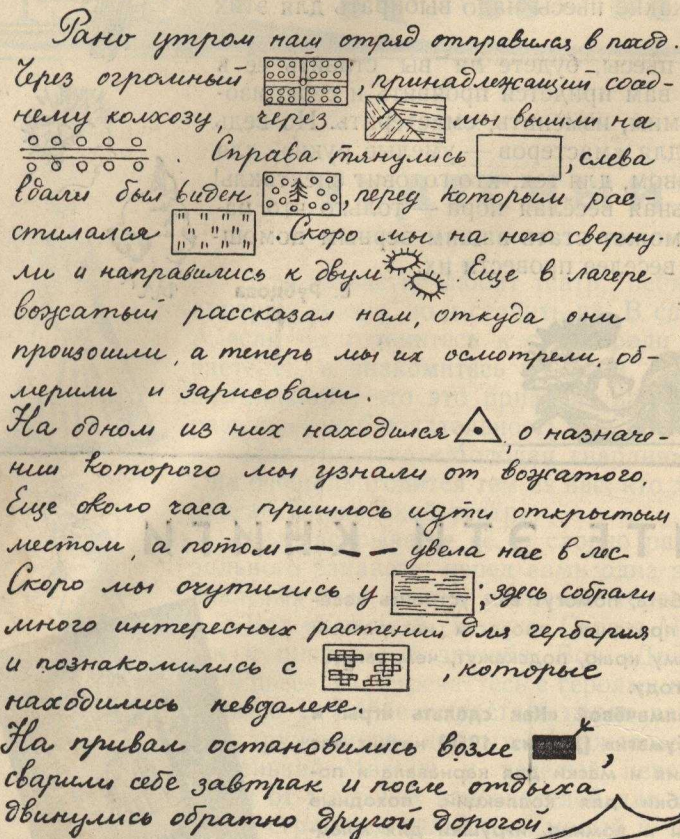 Рано утром наш отряд отправился в поход.
Через огромный , принадлежащий сосед-
нему колхозу, через мы вышли на
. Справа тянулись , слева
вдали был виден , перед которым рас-
стилался . Скоро мы на него сверну-
ли и направились к двум . Еще в лагере
вожатый рассказал нам, откуда они
произошли, а теперь мы их осмотрели, об-
мерили и зарисовали.
На одном из них находился , о назначе-
нии которого мы узнали от вожатого.
Еще около часа пришлось идти открытым
местом, а потом увела нас в лес
Скоро мы очутились у ; здесь собрали
много интересных растений для гербария
и познакомились с , которые
находились невдалеке.
На привал остановились возле ,
сварили себе завтрак и после отдыха
двинулись обратно другой дорогой.